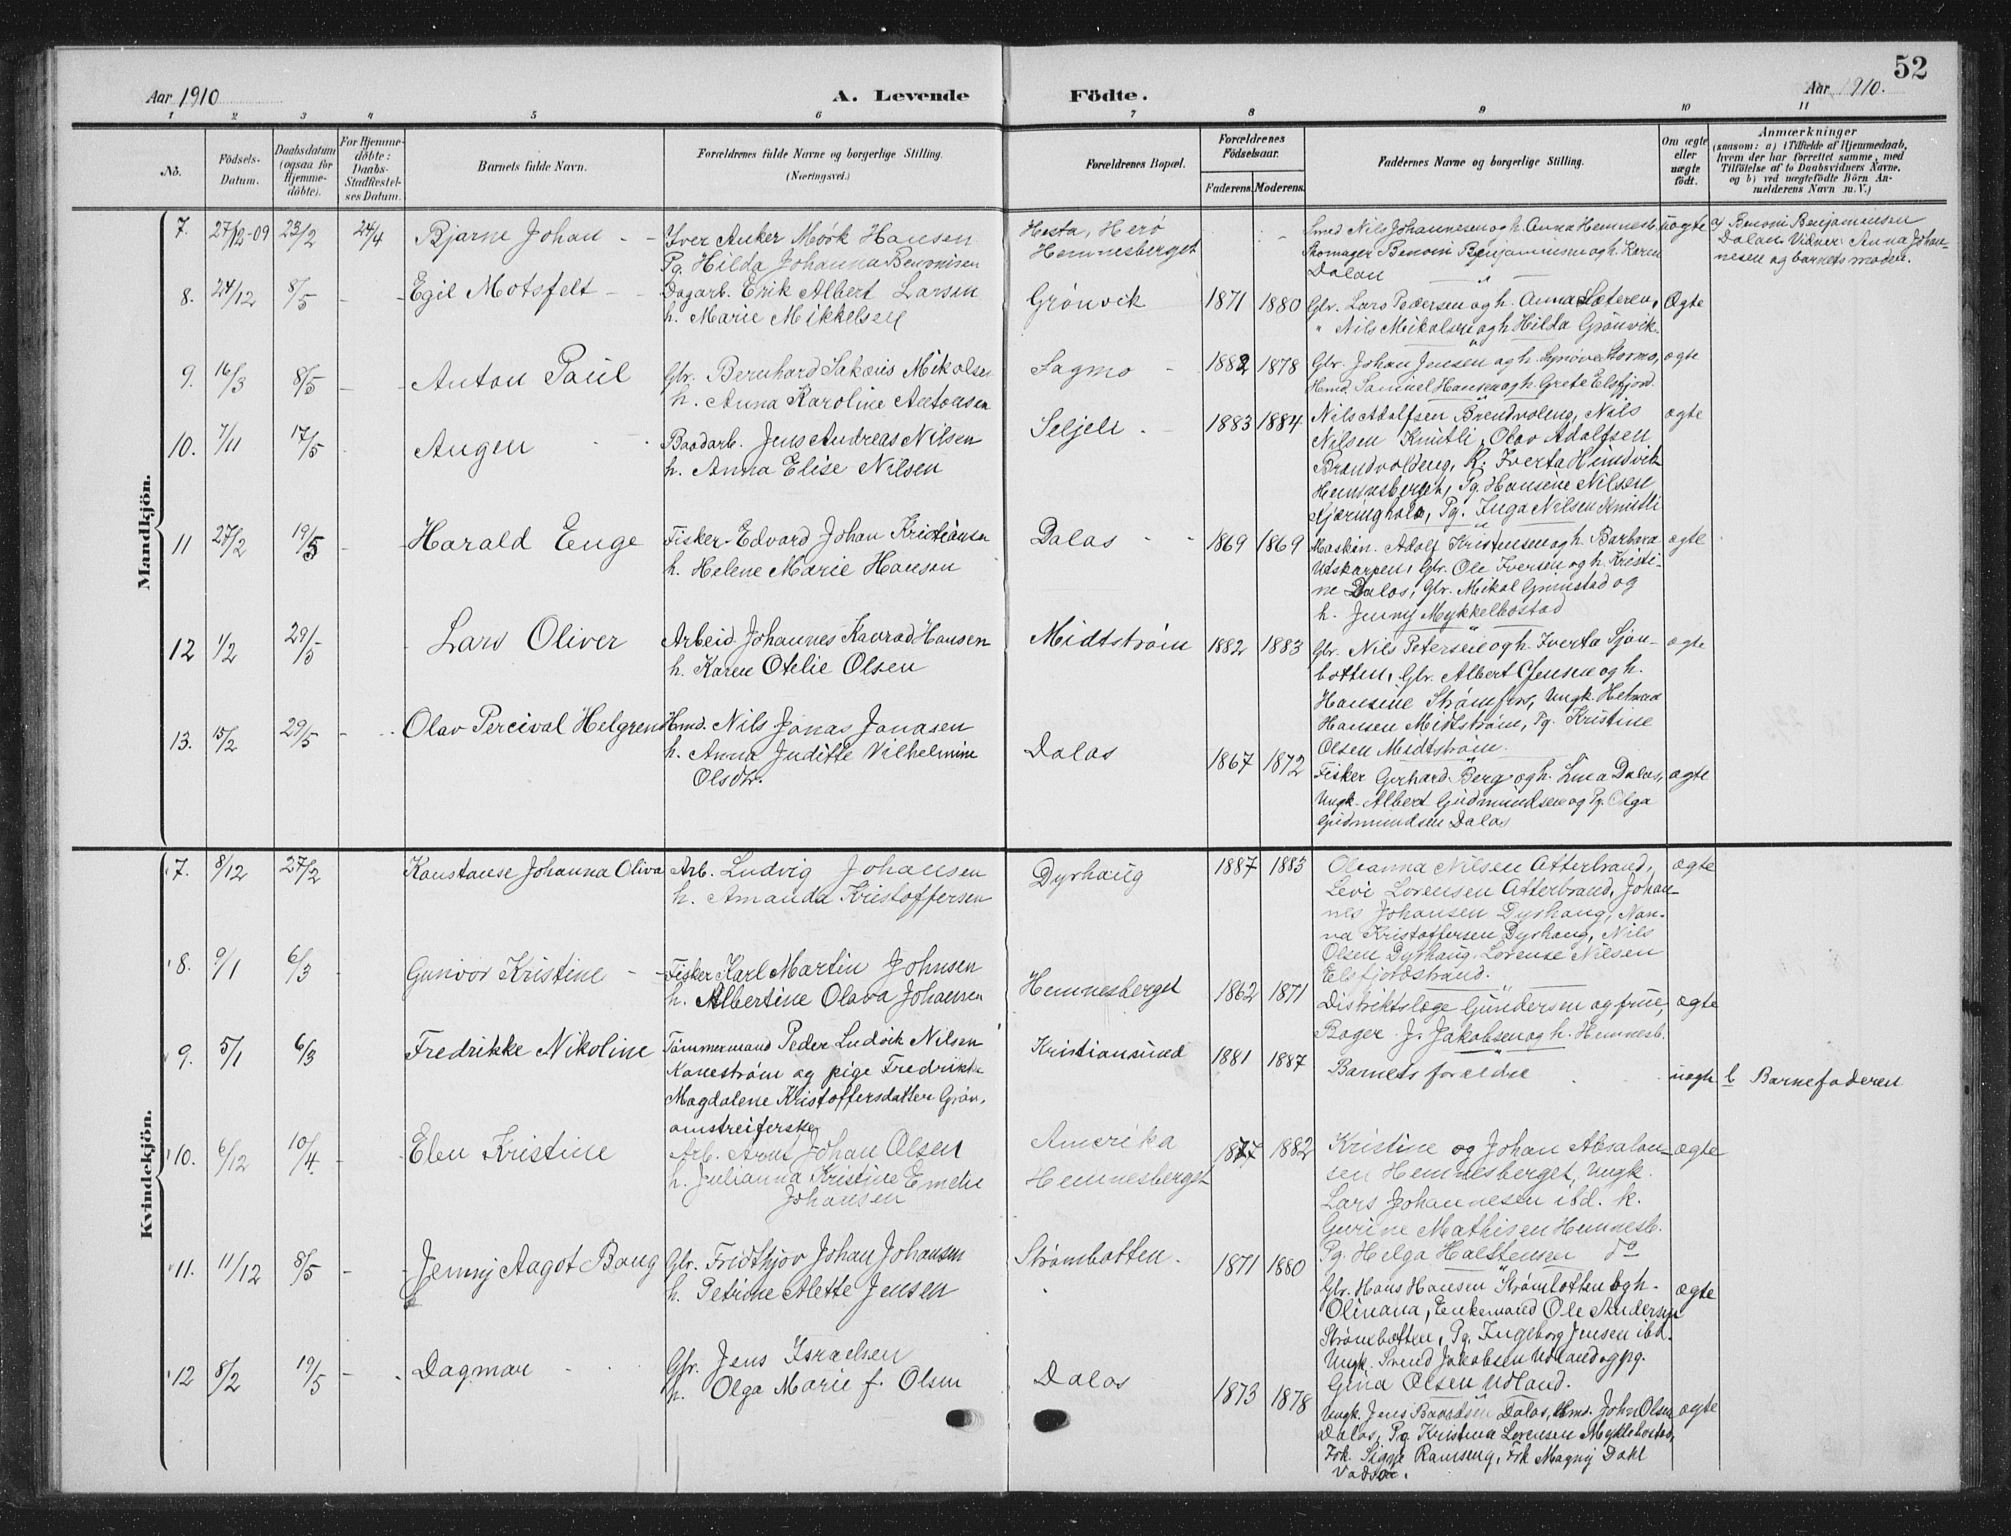 52
Aar 1910
A. Levende
Födte.
Aar 1910.
1 2 3 4 5 6 7 8 9 10 11
No.
Födsels-
Datum.
Daabsdatum
(ogsaa for
Hjemme-
döbte).
For Hjemme-
döbte:
Daabs-
Stadfæstel-
ses Datum.
Barnets fulde Navn.
Forældrenes fulde Navne og borgerlige Stilling.
(Næringsvei.)
Forældrenes Bopæl.
Forældrenes
Födselsaar.
Faderens.
Moderens.
Faddernes Navne og borgerlige Stilling.
Om ægte
eller
uægte
födt.
Anmærkninger
(saasom: a) i Tilfælde af Hjemmedaab,
hvem der har forrettet samme, med
Tilföielse af to Daabsvidners Navne,
og b) ved uægtefödte Börn An-
melderens Navn m. V.)
Mandkjön.
7. 27/12-09 23/2 24/4 Bjarne Johan
Yver Anker Möök Hansen
Pg. Hilda Johanna Benonisen
Hesta, Herö
Hemnesberget
Smed Nils Johannesen og h. Anna Hemnesb.
Skomager Benoni Benjaminsen og h. Karen
Dalan
uægte
a/ Benoni Benjaminsen
Dalan Vidner: Anna Johan-
nesen og barnets moder.
8. 24/12 8/5 Egil Motsfelt
Dagarb. Erik Albert Larsen
h. Marie Mikkelsen
Grönvik
1871 1880
Gbr. Lars Pedersen og h. Anna Sæteren,
" Nils Mikalsen og h Hilda Grönvik
Ægte
9. 16/3 8/5 Anton Paul
Gbr. Bernhard Sakæus Mikalsen
h. Anna Karoline Antonsen
Sagmo
1882 1878
Gbr. Johan Jensen og h. Synöve Stormo,
Hmd. Samuel Hansen og h. Grete Elsfjord.
ægte
10. 7/11 17/5 Augen
Baadarb. Jens Andreas Nilsen
h. Anna Elise Nilsen
Seljeli
1883 1884
Nils Adolfsen Brendvoleng, Nils
Nilsen Knutli, Olav Adolfsen
Brandvolleng, K. Iverta Hundvik
Hemnesberget, Pg. Hansine Nilsen
Kjæringhale, Pg. Inga Nilsen Knutli
ægte
11 27/2 19/5 Harald Enge
Fisker Edvard Johan Kristiansen
h. Helene Marie Hansen
Dalos
1869 1869
Maskin. Adolf Kristensen og h. Barbara
Utskarpen, Gbr. Ole Iversen og h. Kristi-
ne Dalos, Gbr. Mikal Grimstad og
h. Jenny Mykkelbostad
ægte
12 1/2 29/5 Lars Oliver
Arbeid. Johannes Konrad Hansen
h. Karen Otelie Olsen
Midtström
1882 1883
Gbr. Nils Petersen og h. Iverta Sjon-
botten, Gbr. Albert Jensen og h.
Hansine Strömfors, Ungk. Helmer
Hansen Midtström, Pg. Kristine
Olsen Midtström.
ægte
13. 15/2 29/5 Olav Percival Helgren
Hmd. Nils Jonas Jonasen
h. Anna Juditte Vilhelmine
Olsdtr.
Dalos
1867 1872
Fisker Gerhard Berg og h. Lina Dalos,
Ungk. Albert Gudmundsen og Pg. Olga
Gudmundsen Dalos
ægte
Kvindekjön.
7. 8/12 27/2 Konstanse Johanna Oliva
Arb. Ludvig Johansen
h. Amanda Kristoffersen
Dyrhaug
1887 1885
Oleanna Nilsen Atterbrand,
Levi Lorensen Atterbrand, Johan-
nes Johansen Dyrhaug, Nan-
na Kristoffersen Dyrhaug, Nils
Olsen Dyrhaug, Lorense Nilsen
Elsfjordstrand.
ægte
8. 9/1 6/3 Gunvor Kristine
Fisker Karl Martin Johnsen
h. Albertine Olava Johansen
Hemnesberget
1862 1871
Distriktslæge Gundersen og frue,
Bager J. Jakobsen og h. Hemnesb.
ægte
9. 5/1 6/3 Fredrikke Nikoline
Tömmermand Peder Ludvik Nilsen
Kaneström og pige Fredrikke
Magdalene Kristoffersdatter Grön,
omstreiferske
Kristiansund
1881 1887
Barnets forældre
uægte
b Barnefaderen
10. 6/12 10/4 Elen Kristine
Arb. Arnt Johan Olsen
h. Julianna Kristine Emelie
Johansen
Amerika
Hemnesberget
1877 1882
Kristine og Johan Absalon-
sen Hemnesberget, Ungk.
Lars Johannesen ibd. k.
Gurine Mathisen Hemnesb.
Pg. Helga Halstensen do
ægte
11. 11/12 8/5 Jenny Aagot Bang
Gbr. Fridthjov Johan Johansen
h. Petrine Alette Jensen
Strömbotten.
1871 1880
Gbr. Hans Hansen Strömbotten og h.
Olinana, Enkemand Ole Andersen
Strömbotten, Pg. Ingeborg Jensen ibd.
Ungk. Svend Jakobsen Udland og pg.
Gina Olsen Udland.
ægte
12 8/2 19/5 Dagmar
Gbr. Jens Israelsen
h. Olga Marie f. Olsen
Dalos
1873 1878
Ungk. Jens Baardsen Dalos, Hmd. John Olsen
Dalos, Pg. Kristina Lorensen Myklebostad,
Frk. Signe Ramseng, Frk Magny Dahl
Vadsö.
ægte